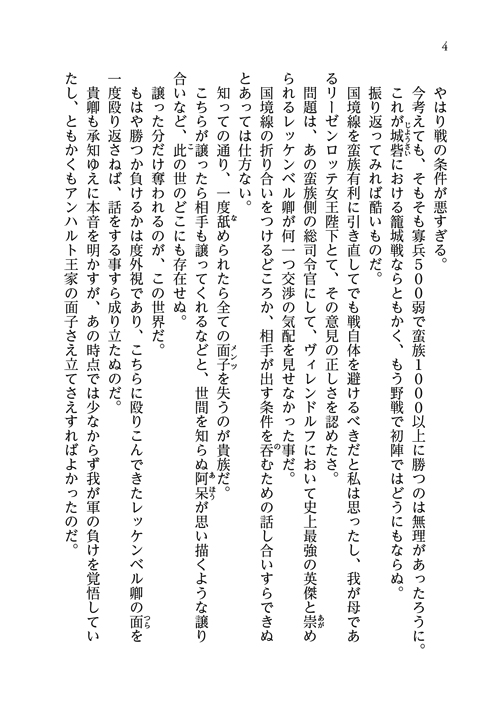 4
やはり戦の条件が悪すぎる。
今考えても、そもそも寡兵500弱で蛮族1000以上に勝つのは無理があったろうに。
これが城砦における籠城戦ならともかく、もう野戦で初陣ではどうにもならぬ。
振り返ってみれば酷いものだ。
国境線を蛮族有利に引き直してでも戦自体を避けるべきだと私は思ったし、我が母であ
るリーゼンロッテ女王陛下とて、その意見の正しさを認めたさ。
問題は、あの蛮族側の総司令官にして、ヴィレンドルフにおいて史上最強の英傑と崇め
られるレッケンベル卿が何一つ交渉の気配を見せなかった事だ。
国境線の折り合いをつけるどころか、相手が出す条件を呑むための話し合いすらできぬ
とあっては仕方ない。
知っての通り、一度舐められたら全ての面子を失うのが貴族だ。
こちらが譲ったら相手も譲ってくれるなどと、世間を知らぬ阿呆が思い描くような譲り
合いなど、此の世のどこにも存在せぬ。
譲った分だけ奪われるのが、この世界だ。
もはや勝つか負けるかは度外視であり、こちらに殴りこんできたレッケンベル卿の面を
一度殴り返さねば、話をする事すら成り立たぬのだ。
貴卿も承知ゆえに本音を明かすが、あの時点では少なからず我が軍の負けを覚悟してい
たし、ともかくもアンハルト王家の面子さえ立てさえすればよかったのだ。